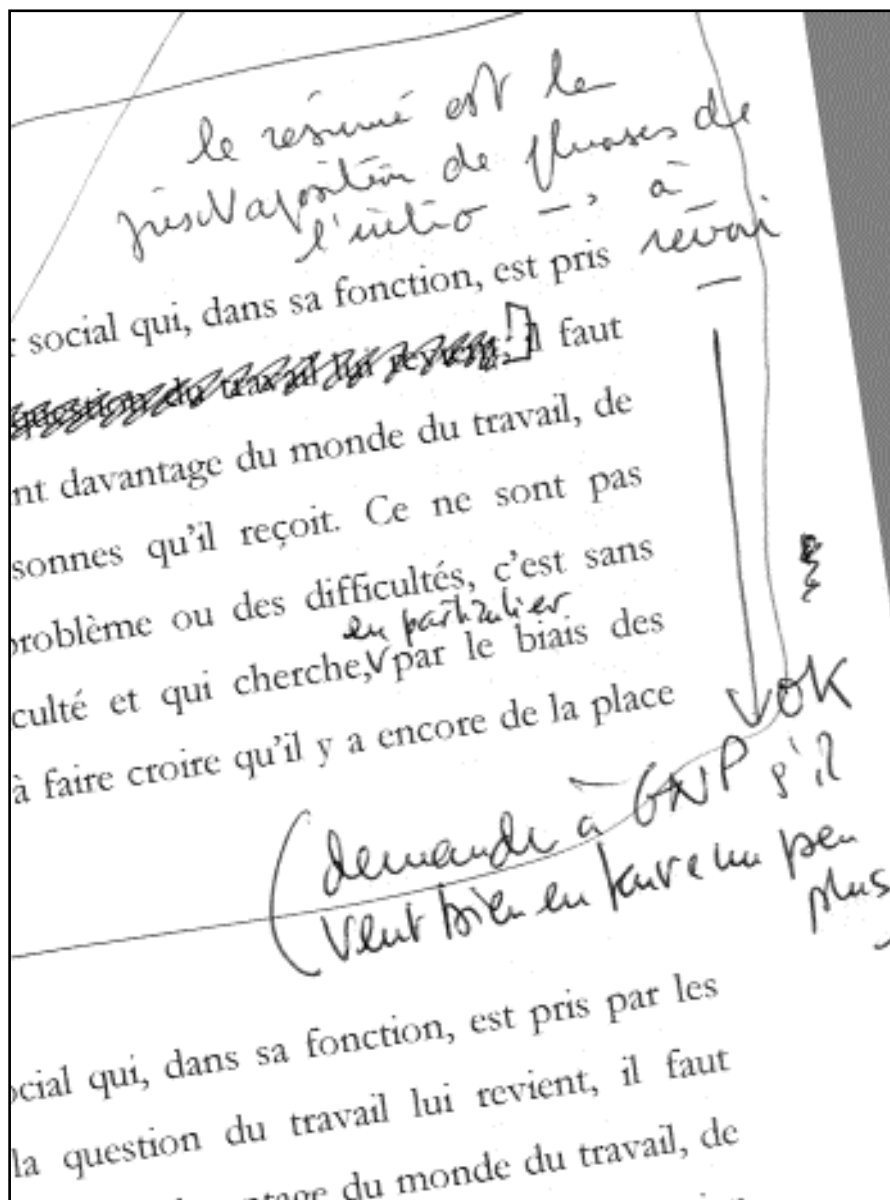 le résumé est la
juxtaposition de phrases de
l'intro → à
revoir
social qui, dans sa fonction, est pris
question du travail lui revient, il faut
nt davantage du monde du travail, de
sonnes qu'il reçoit. Ce ne sont pas
problème ou des difficultés, c'est sans
en particulier
culté et qui cherche, par le biais des
à faire croire qu'il y a encore de la place
OK
(demande à GNP s'il
veut bien en faire un peu
plus)
ocial qui, dans sa fonction, est pris par les
la question du travail lui revient, il faut
antage du monde du travail, de